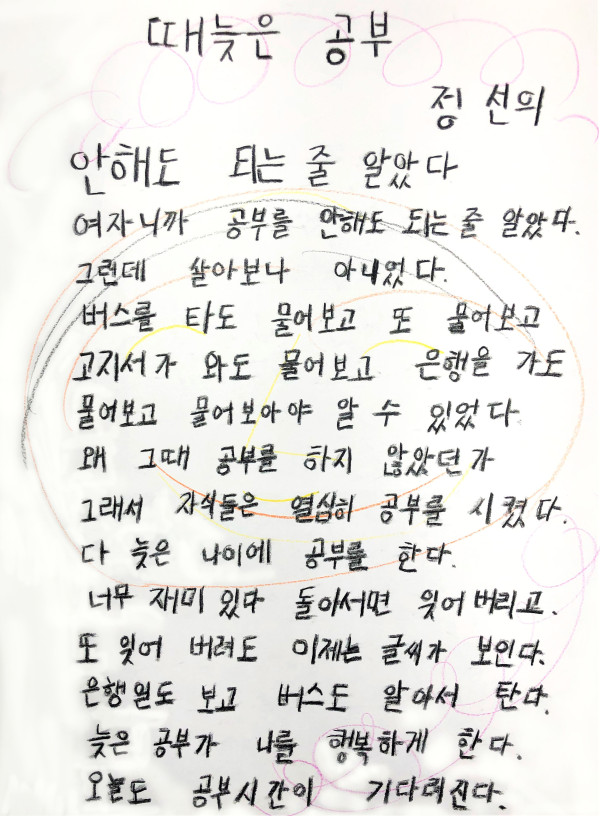 때늦은 공부
정 선의
안해도 되는 줄 알았다
여자니까 공부를 안해도 되는줄 알았다.
그런데 살아보나 아니었다.
버스를 타도 물어보고 또 물어보고
고지서가 와도 물어보고 은행을 가도
물어보고 물어보아야 알 수 있었다
왜 그때 공부를 하지 않았던가
그래서 자식들은 열심히 공부를 시켰다.
다 늦은 나이에 공부를 한다.
너무 재미있다 돌아서면 잊어버리고.
또 잊어 버려도 이제는 글씨가 보인다.
은행일도 보고 버스도 알아서 탄다.
늦은 공부가 나를 행복하게 한다.
오늘도 공부시간이 기다려진다.